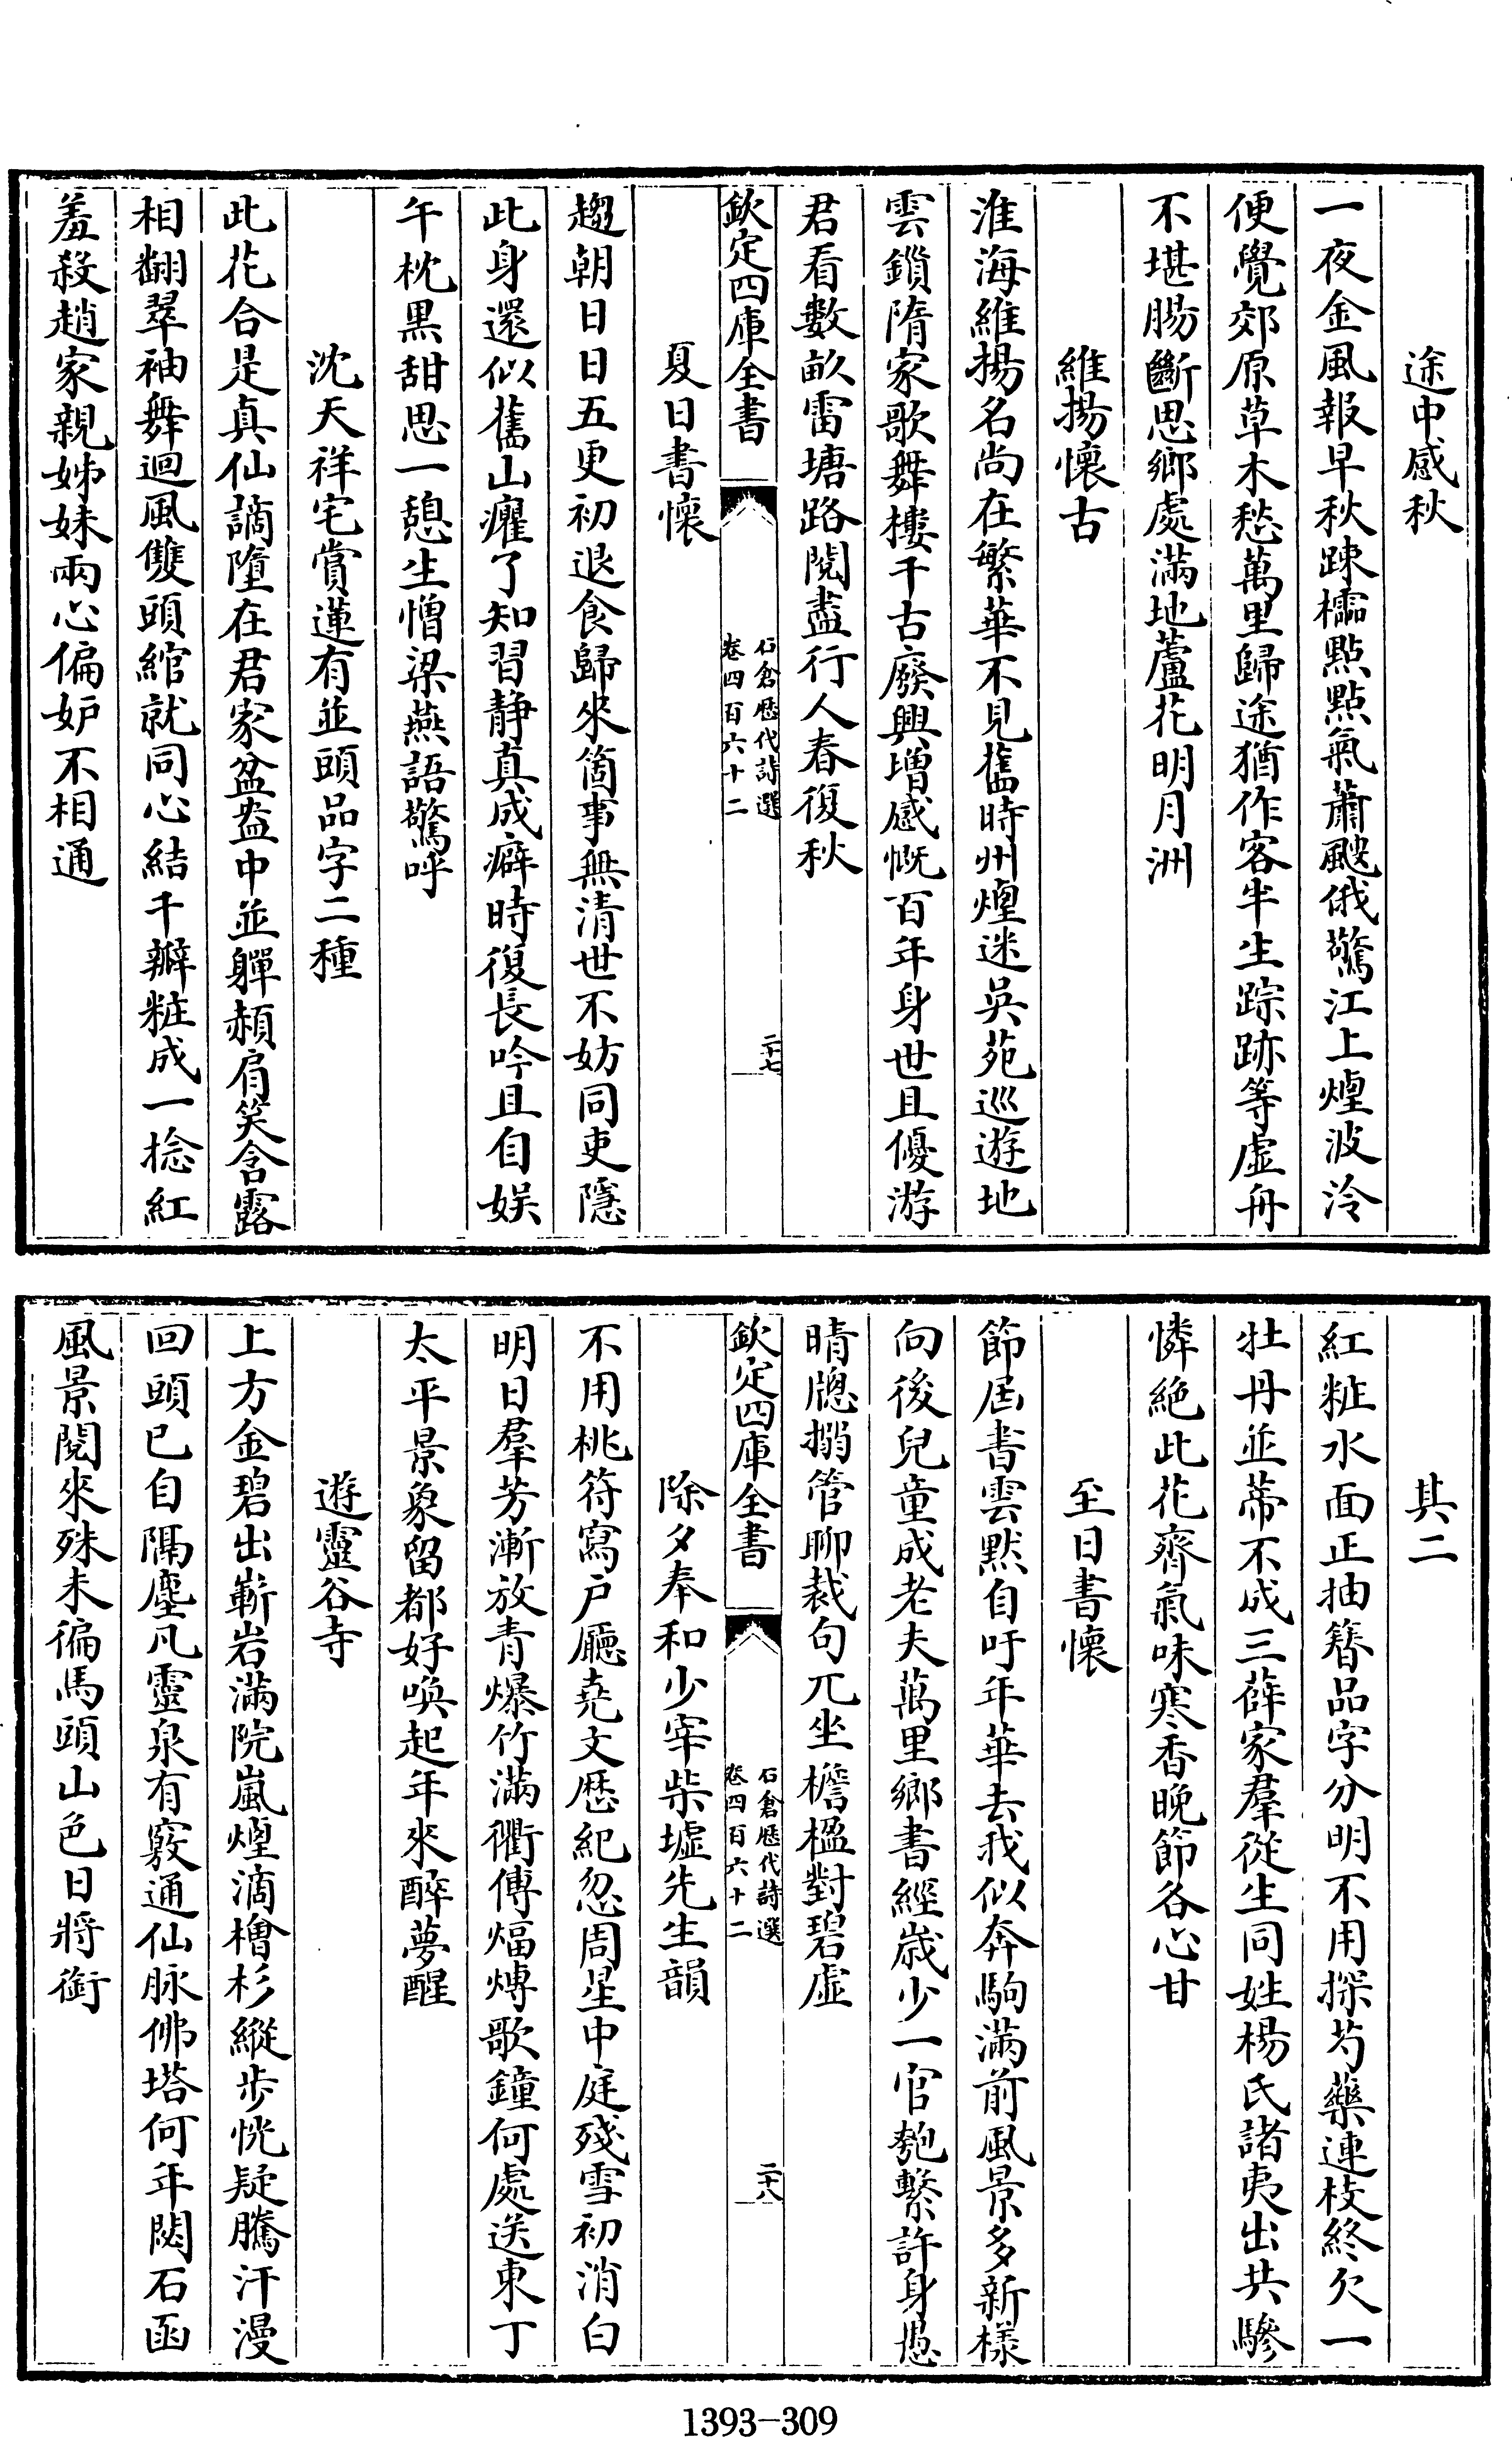 途中感秋
一夜金風報早秋踈櫺點點氣蕭颼俄驚江上煙波冷
便覺郊原草木愁萬里歸途猶作客半生踪跡等虛舟
不堪腸斷思鄉處滿地蘆花明月洲
維揚懷古
淮海維揚名尚在繁華不見舊時州煙迷吳苑巡遊地
雲鎖隋家歌舞樓千古廢興増感慨百年身世且優游
君看數畝雷塘路閱盡行人春復秋
欽定四庫全書
石倉歴代詩選
卷四百六十二
二十七
夏日書懷
趨朝日日五更初退食歸來箇事無清世不妨同吏隱
此身還似舊山癯了知習靜真成癖時復長吟且自娛
午枕黒甜思一憩生憎梁燕語驚呼
沈天祥宅賞蓮有並頭品字二種
此花合是真仙謫墮在君家盆盎中並軃頳肩笑含露
相翻翠袖舞迴風雙頭綰就同心結千瓣粧成一捻紅
羞殺趙家親姊妹兩心偏妒不相通
其二
紅粧水面正抽簪品字分明不用探芍藥連枝終欠一
牡丹並蒂不成三薛家羣從生同姓楊氏諸夷出共驂
憐絶此花齊氣味寒香晚節各心甘
至日書懷
節屆書雲黙自吁年華去我似奔駒滿前風景多新様
向後兒童成老夫萬里鄉書經歳少一官匏繫許身愚
晴牕搦管聊裁句兀坐檐楹對碧虛
欽定四庫全書
石倉歴代詩選
卷四百六十二
二十八
除夕奉和少宰柴墟先生韻
不用桃符寫戶廳堯文歴紀忽周星中庭殘雪初消白
明日羣芳漸放青爆竹滿衢傳煏煿歌鐘何處送東丁
太平景象留都好喚起年來醉夢醒
遊靈谷寺
上方金碧出嶄岩滿院嵐煙滴檜杉縱步恍疑騰汗漫
回頭已自隔塵凡靈泉有竅通仙脉佛塔何年閟石函
風景閱來殊未徧馬頭山色日將銜
1393-309